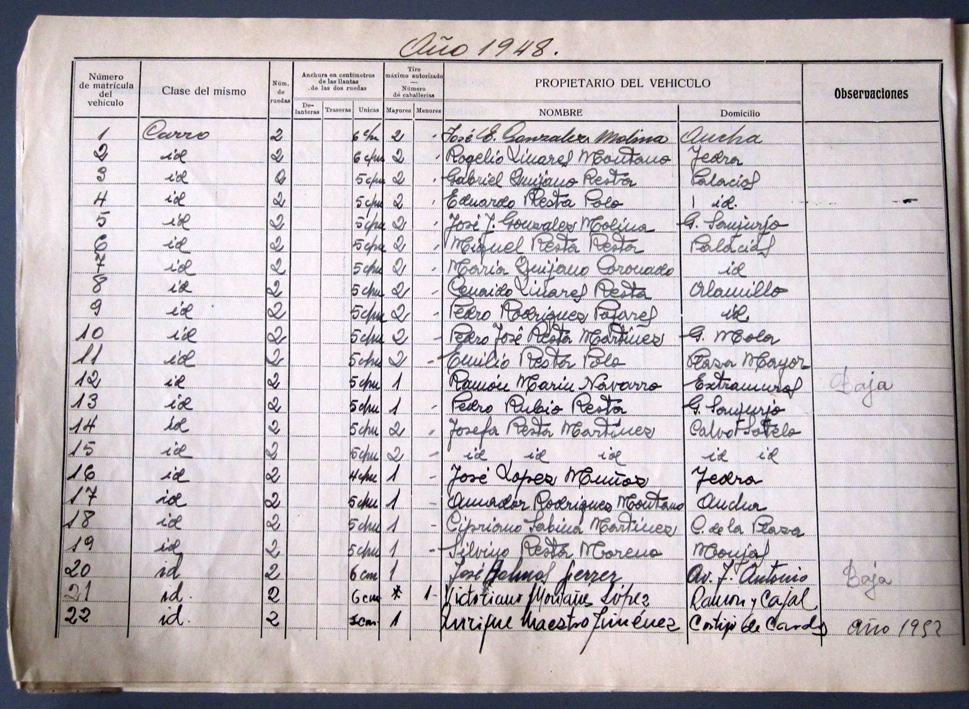 Año 1948.
Número de matrícula del vehículo Clase del mismo Núm. de ruedas Anchura en centímetros de las llantas de las dos ruedas Tiro máximo autorizado — Número de caballerías PROPIETARIO DEL VEHICULO Observaciones
Delanteras Traseras Unicas Mayores Menores NOMBRE Domicilio
1 Carro 2 6 c/m 2 - José E. Gonzalez Molina Ancha
2 id 2 6 c/m 2 - Rogelio Linares Montano Yedra
3 id 2 5 c/m 2 - Gabriel Quijano Resta Palacios
4 id 2 5 c/m 2 - Eduardo Resta Polo id.
5 id 2 5 c/m 2 - José J. Gonzales Molina G. Sanjurjo
6 id 2 5 c/m 2 - Miguel Resta Resta Palacios
7 id 2 5 c/m 2 - Maria Quijano Coronado id
8 id 2 5 c/m 2 - Linares Resta Alamillo
9 id 2 5 c/m 2 - Pedro Rodrigues id.
10 id 2 5 c/m 2 - Pedro José Resta Martínez G. Mola
11 id 2 5 c/m 2 - Emilio Resta Polo Plaza Mayor
12 id 2 5 c/m 1 Ramón Marin Navarro Extramuros Baja
13 id 2 5 c/m 1 - Pedro Rubio Resta G. Sanjurjo
14 id 2 5 c/m 2 - Josefa Resta Martínez Calvo Sotelo
15 id 2 5 c/m 2 - id id id id id
16 id 2 4 c/m 1 - José Lopez Muñoz Yedra
17 id 2 5 c/m 1 - Amador Rodrigues Montano Ancha
18 id 2 5 c/m 1 - Cipriano Sabina Martínez C. de la Plaza
19 id 2 5 c/m 1 - Silvino Resta Moreno Monjas
20 id 2 6 cm 1 José Ferrer Av. J. Antonio Baja
21 id. 2 6 cm * 1- Victoriano Montañes López Ramon y Cajal
22 id. 2 5 cm 1 Enrique Maestro Jiménez Cortijo de Año 1952